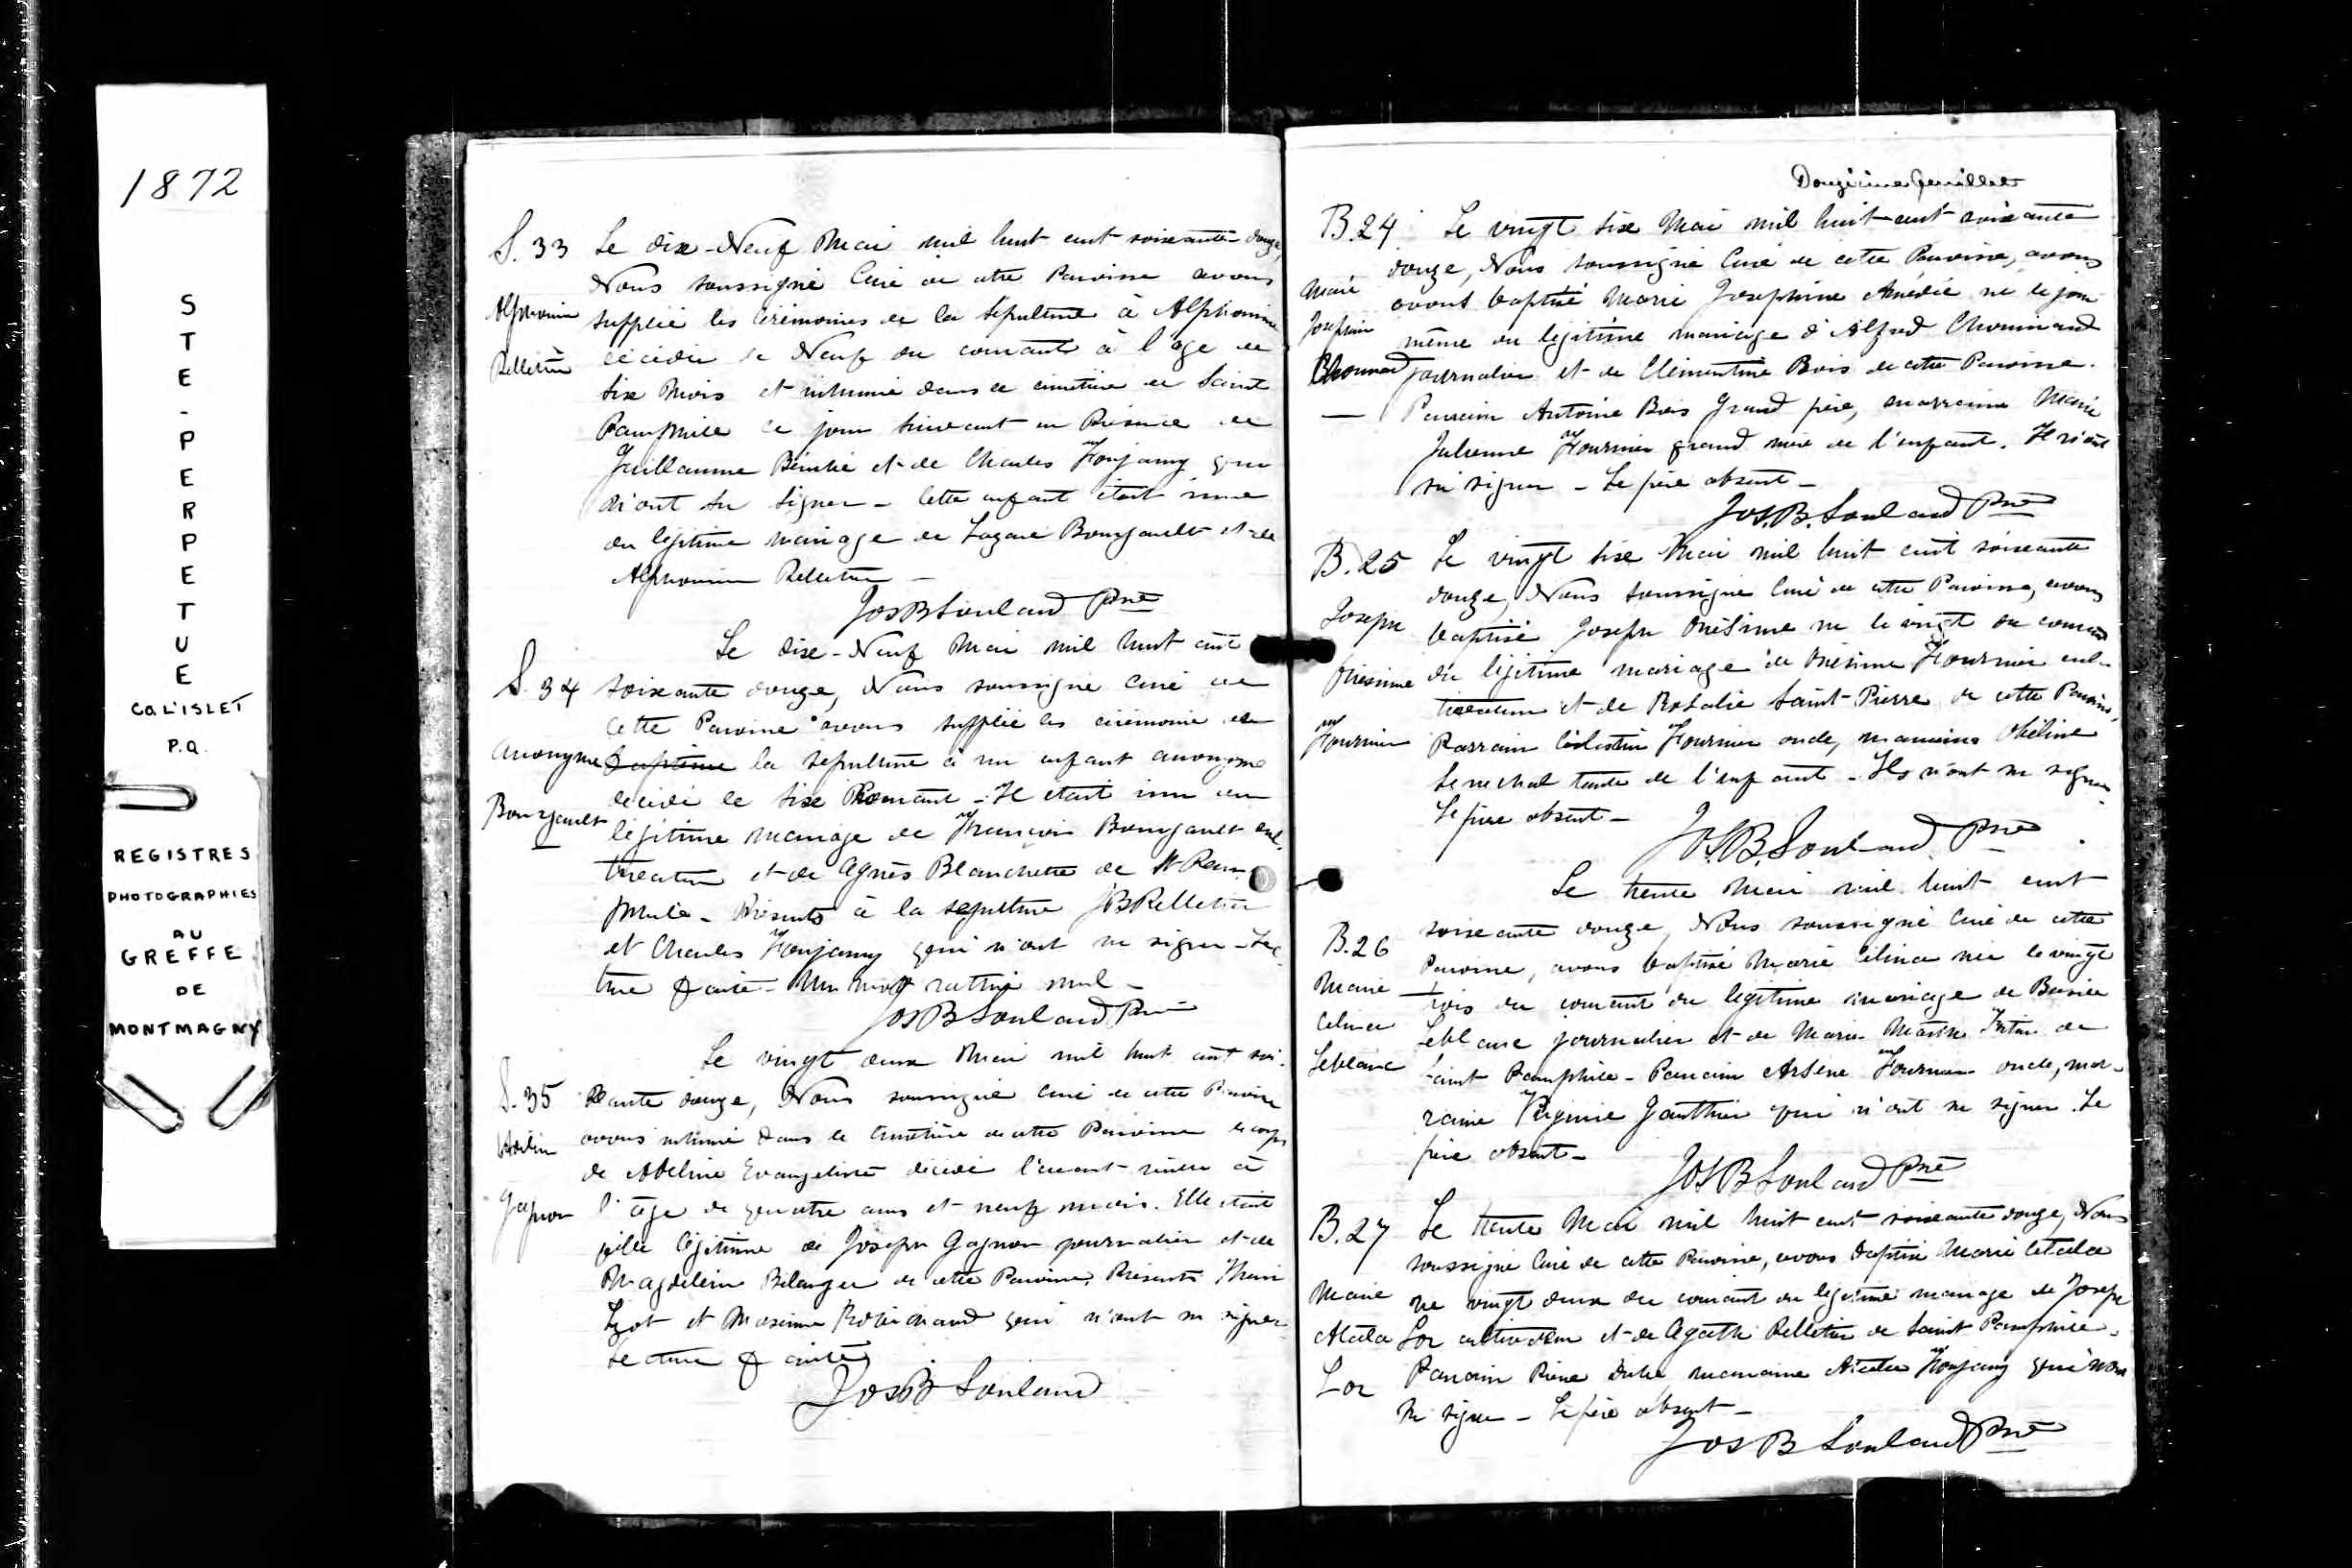 1872
STE-PERPETUE
CO L'ISLET
P.Q.
REGISTRES
PHOTOGRAPHIES
AU
GREFFE
DE
MONTMAGNY
S. 33
Alphonsine
Pelletier
Le dix-Neuf Mai mil huit cent soixante-douze,
Nous soussigné Curé de cette Paroisse avons
supplié les Cérémonies de la Sépulture à Alphonsine
décédée le Neuf du courant à l'âge de
six Mois et inhumé dans le cimetière de Saint
Pamphile le jour suivant en Présence de
Guillaume et de Charles Fonjamy qui
n'ont su signer - Cette enfant était issue
du légitime mariage de Lazare Bourgault et de
Alphonsine Pelletier -
Jos B Soulard Ptre
S. 34
Anonyme
Bourgault
Le dix-Neuf Mai mil huit cent
soixante douze, Nous soussigné curé de
cette Paroisse avons supplié les cérémonie de
la sépulture à un enfant anonyme
décédé le six - Il était issu du
légitime mariage de François Bourgault cul
tivateur et de Agnès Blanchette de St Pam
phile - Présents à la sépulture JB Pelletier
et Charles Fonjamy qui n'ont su signer - Lec
ture faite - Un mot nul -
Jos B Soulard Ptre
S. 35
Adeline
Gagnon
Le vingt deux Mai mil huit cent soi-
xante douze, Nous soussigné curé de cette Paroisse
avons inhumé dans le cimetière de cette Paroisse le corps
de Adeline Evangeliste décédé l'avant-veille à
l'âge de quatre ans et neuf mois. Elle était
fille légitime de Joseph Gagnon journalier et de
Magdeleine Belanger de cette Paroisse. Présents
et Maxime Robichaud qui n'ont su signer -
Lecture faite
Jos B Soulard
Douzième feuillet
B. 24
Marie
Josephine
Chouinard
Le vingt six Mai mil huit-cent soixante
douze, Nous soussigné Curé de cette Paroisse, avons
avons baptisé Marie Josephine Amédée né le jour
même du légitime mariage d'Alfred Chouinard
journalier et de Clémentine Bois de cette Paroisse.
Parrain Antoine Bois Grand père, marraine Marie
Julienne Fournier grand mère de l'enfant. Il n'ont
su signer - Le père absent -
Jos. B. Soulard Ptre
B. 25
Joseph
Onésime
Fournier
Le vingt six Mai mil huit cent soixante
douze, Nous soussigné Curé de cette Paroisse, avons
baptisé Joseph Onésime né le vingt du courant
du légitime mariage de Onésime Fournier cul-
tivateur et de Rosalie Saint-Pierre de cette Paroisse,
Parrain Célestin Fournier oncle, marraine Obéline
Senechal tante de l'enfant - Ils n'ont su signer.
Le père absent -
Jos B. Soulard Ptre
B. 26
Marie
Celina
Leblanc
Le trente Mai mil huit cent
soixante douze, Nous soussigné Curé de cette
Paroisse, avons baptisé Marie Célina née le vingt
trois du courant du légitime mariage de Basile
Leblanc journalier et de Marie de
Saint Pamphile - Parrain Arsène Fournier oncle, mar-
raine Virginie Gauthier qui n'ont su signer. Le
père absent -
Jos B Soulard Ptre
B. 27
Marie
Atala
Lor
Le trente Mai mil huit cent soixante douze, Nous
soussigné Curé de cette Paroisse, avons baptisé Marie Atala
né vingt deux du courant du légitime mariage de Joseph
Lor cultivateur et de Agathe Pelletier de Saint Pamphile.
Parrain Pierre Dubé, marraine Atala Fonjamy qui n'ont
su signer - Le père absent -
Jos B Soulard Ptre